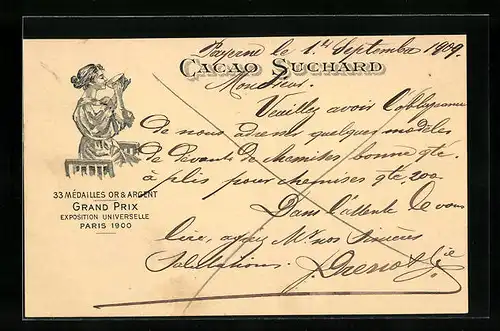 Payerne le 1er Septembre 1909.
CACAO SUCHARD
Monsieur.
Veuillez avoir l'obligeance
de nous adresser quelques modèles
de devants de chemises bonne qté.
à plis pour chemises qté. 200.
33 MÉDAILLES OR & ARGENT
GRAND PRIX
EXPOSITION UNIVERSELLE
PARIS 1900
Dans l'attente de vous
lire, Mr. nos Sincères
Salutations.